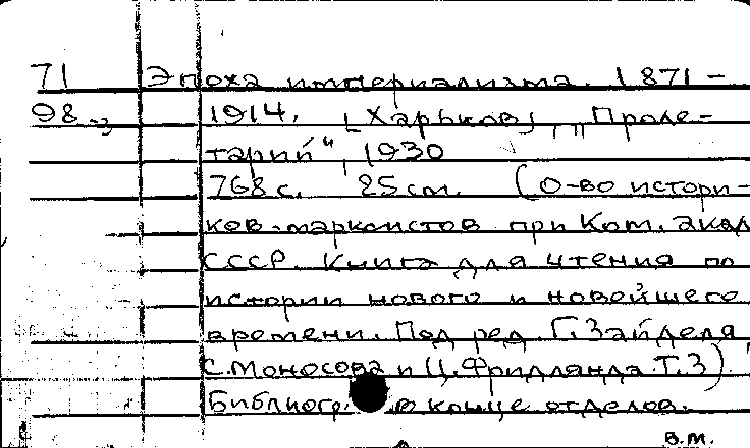 71 Эпоха империализма. 1871-
98-3 1914. [Харьков], "Проле-
тарий", 1930
768 с. 25 см. (О-во истори-
ков-марксистов при Ком. акад
СССР. Книга для чтения по
истории нового и новейшего
времени. Под ред. Г. Зайделя,
С. Моносова и Ц. Фридлянда. Т. 3).
Библиогр. в конце отделов.
В.М.